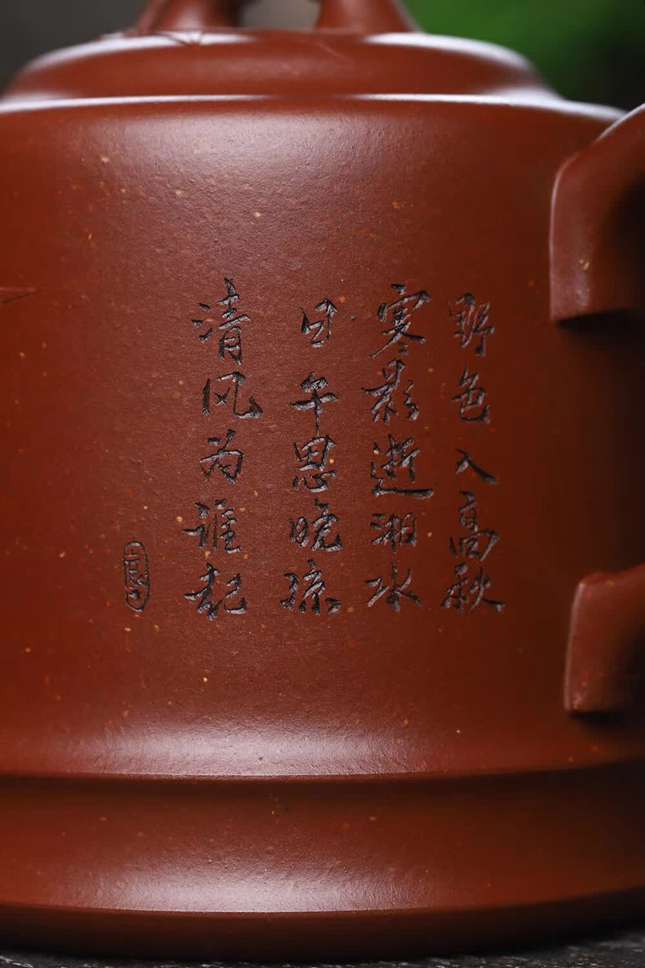 野色入高秋
寒影逝湘水
日午思晚凉
清风为谁起